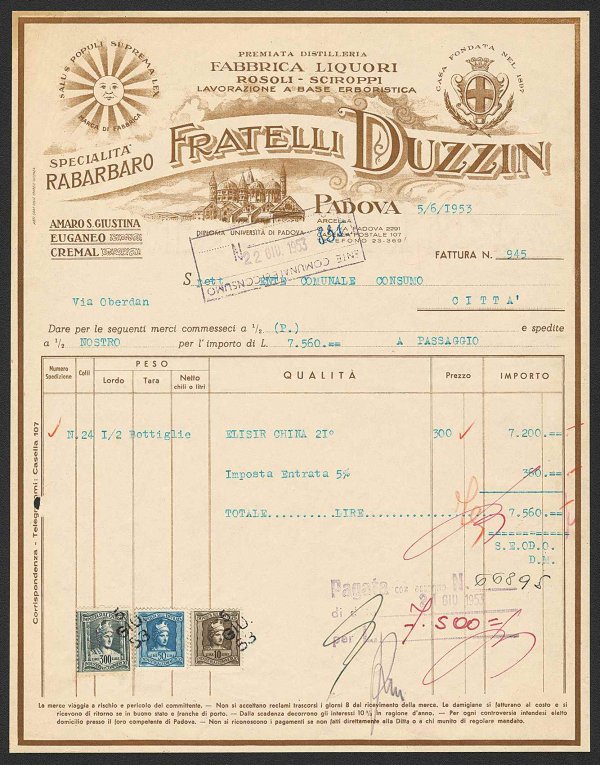 SALUS POPULI SUPREMA LEX
MARCA DI FABBRICA
PREMIATA DISTILLERIA
FABBRICA LIQUORI
ROSOLI - SCIROPPI
LAVORAZIONE A BASE ERBORISTICA
CASA FONDATA NEL 1897
SPECIALITA'
RABARBARO
FRATELLI DUZZIN
PADOVA
5/6/1953
ARCELLA
DIPLOMA UNIVERSITÀ DI PADOVA
PADOVA 2291
POSTALE 107
TELEFONO 23-369
AMARO S. GIUSTINA
EUGANEO
CREMAL
N.
22 GIU. 1953
ENTE COMUNALE CONSUMO
FATTURA N. 945
Spett ENTE COMUNALE CONSUMO
Via Oberdan
CITTA'
Dare per le seguenti merci commesseci a ½. (P.) e spedite
a ½ NOSTRO per l'importo di L. 7.560.== A PASSAGGIO
Numero Spedizione
Colli
PESO
Lordo
Tara
Netto chili o litri
QUALITÀ
Prezzo
IMPORTO
N.24 I/2 Bottiglie ELISIR CHINA 2I° 300 7.200.==
Imposta Entrata 5% 360.==
TOTALE..........LIRE............ 7.560.==
S.E.OD.O.
D.M.
Corrispondenza - Telegrammi: Casella 107
Pagata con N. 66895
GIU 1953
di
7.500=
per
300
LIRE 50 LIRE
LIRE 10 LIRE
5 GIU. 53
5 GIU. 53
Le merce viaggia a rischio e pericolo del committente. — Non si accettano reclami trascorsi i giorni 8 dal ricevimento della merce. Le damigiane si fatturano al costo e si
ricevono di ritorno se in buono stato e franche di porto. — Dalla scadenza decorrono gli interessi 10 % in ragione d'anno. — Per ogni controversia intendesi eletto
domicilio presso il foro competente di Padova. — Non si riconoscono i pagamenti se non fatti direttamente alla Ditta o a chi munito di regolare mandato.